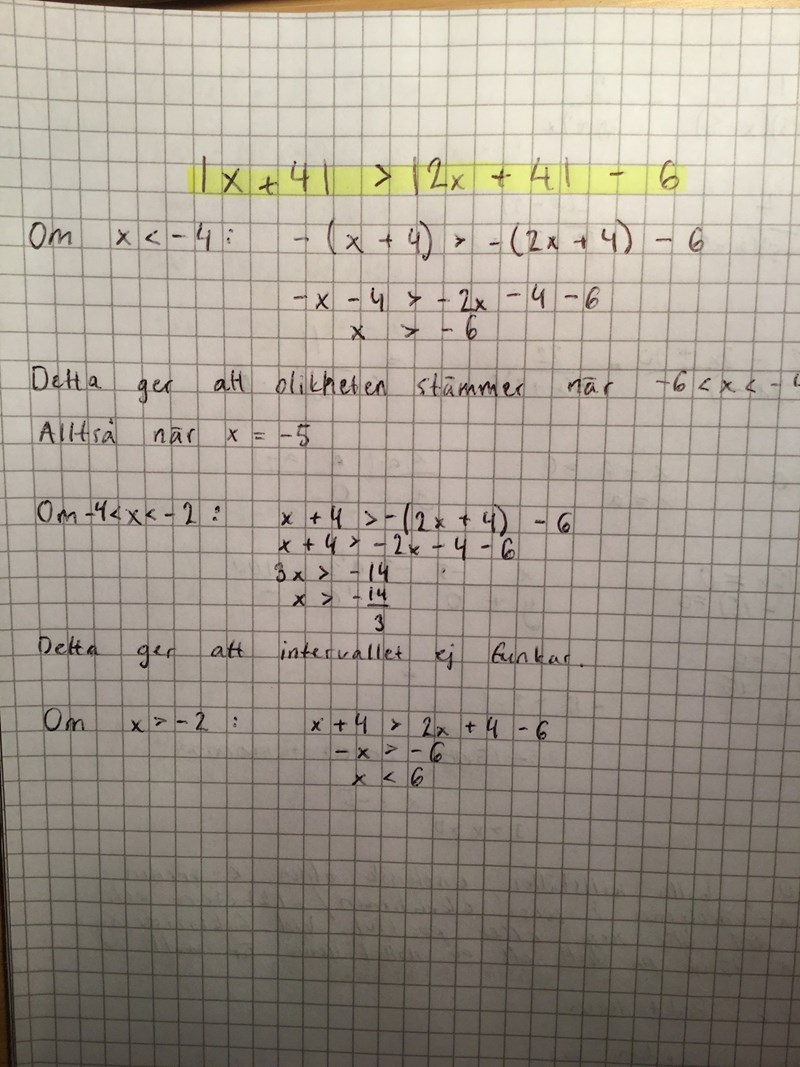 |x + 4| > |2x + 4| - 6
Om x < -4: -(x + 4) > -(2x + 4) - 6
-x - 4 > -2x - 4 - 6
x > -6
Detta ger att olikheten stämmer när -6 < x < -4
Alltså när x = -5
Om -4 < x < -2: x + 4 > -(2x + 4) - 6
x + 4 > -2x - 4 - 6
3x > -14
x > -14/3
Detta ger att intervallet ej funkar.
Om x > -2: x + 4 > 2x + 4 - 6
-x > -6
x < 6